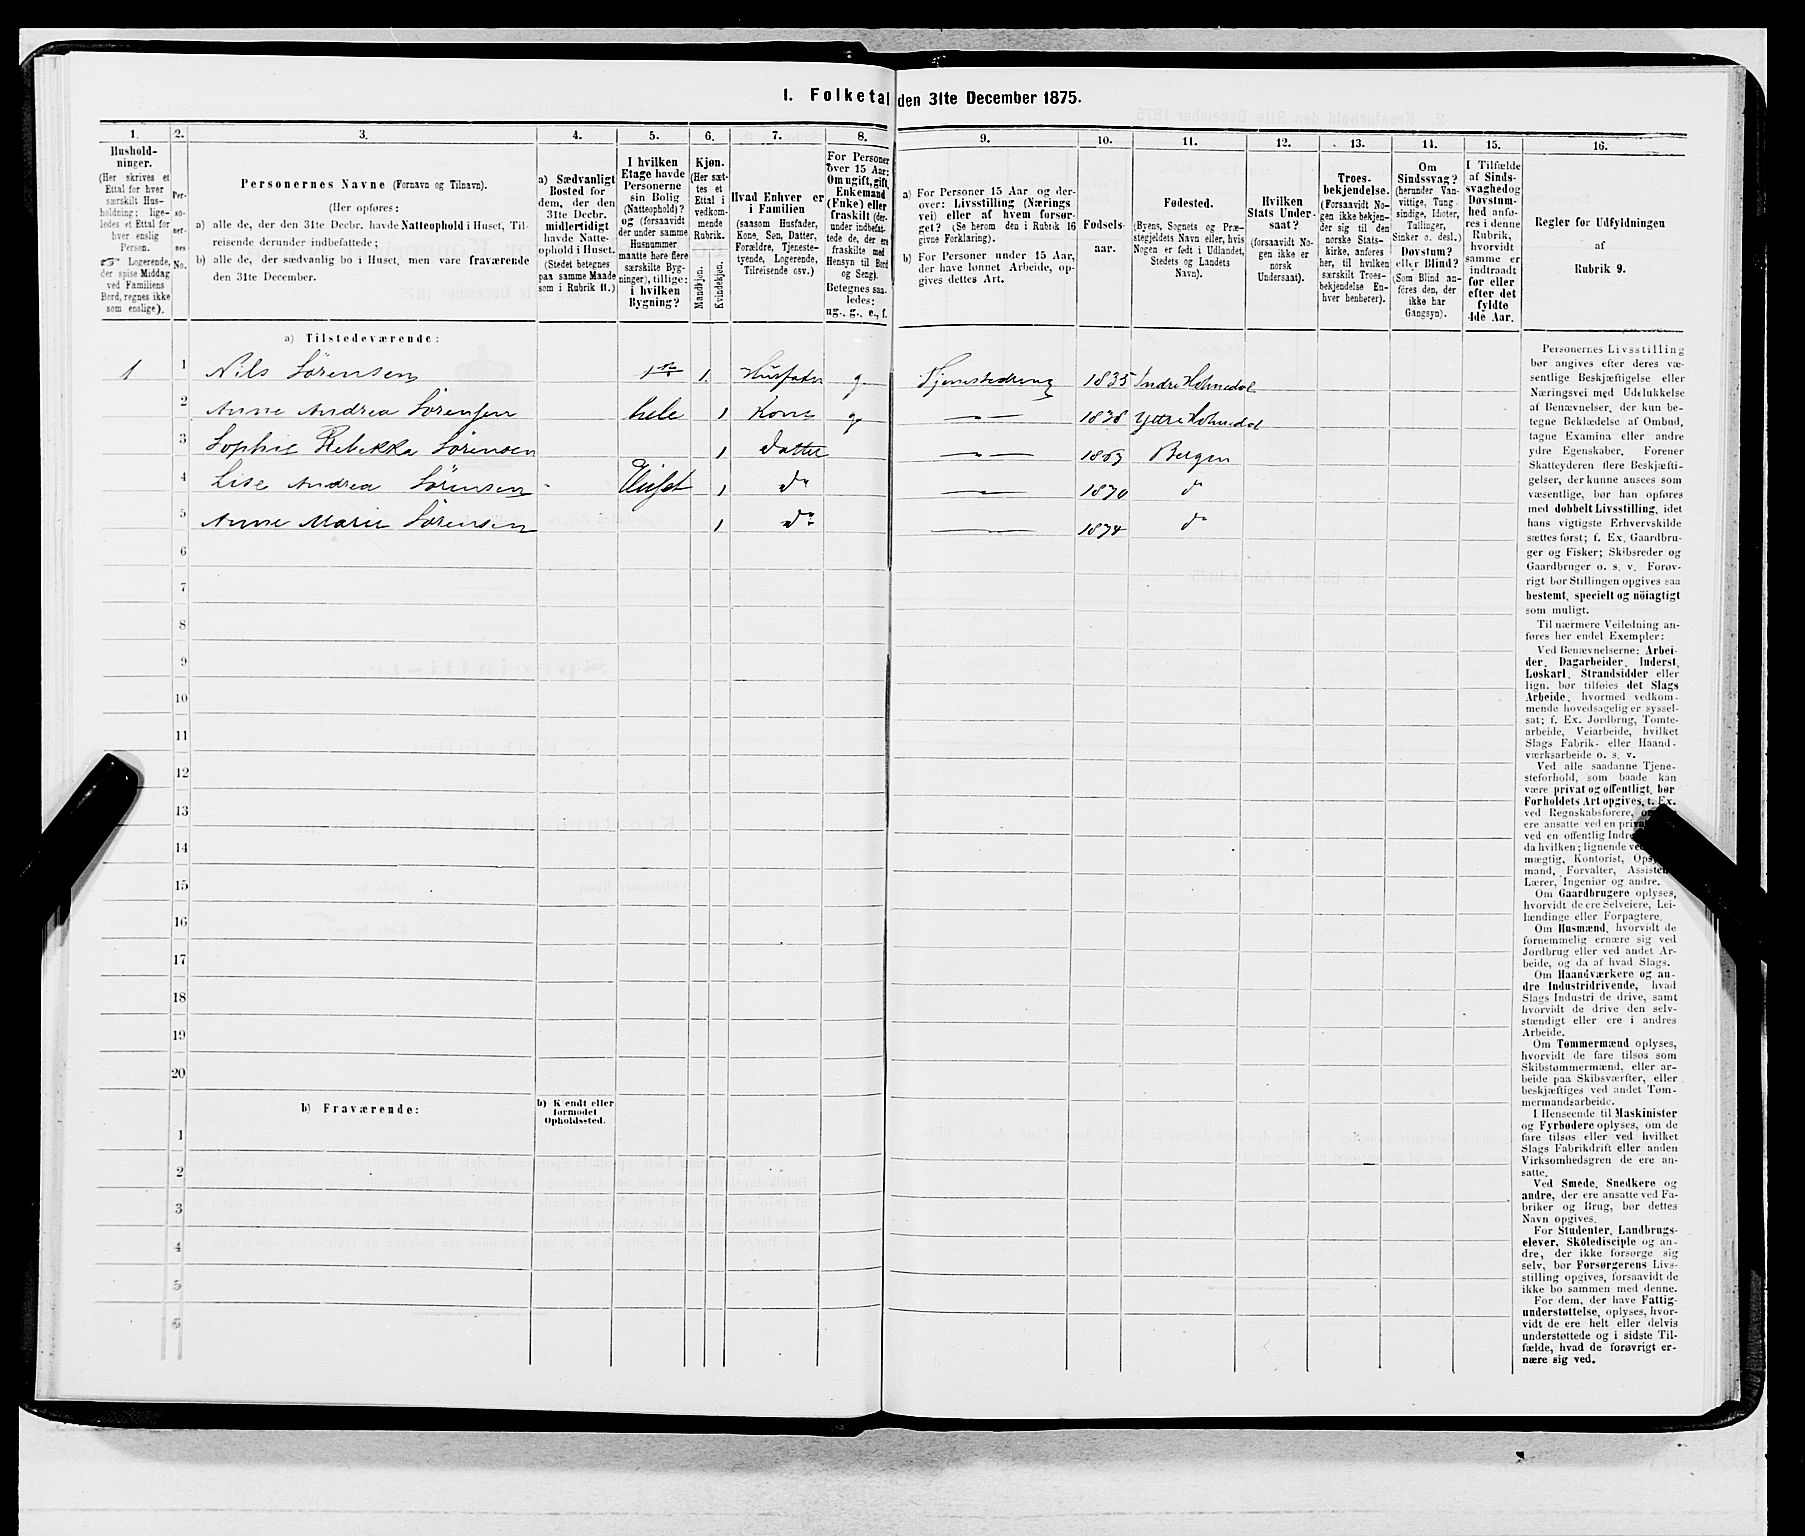 I. Folketal den 31te December 1875.
1. 2. 3. 4. 5. 6. 7. 8. 9. 10. 11. 12. 13. 14. 15. 16.
Hushold-
ninger.
(Her skrives et
Ettal for hver
særskilt Hus-
holdning; lige-
ledes et Ettal for
hver enslig
Person.
☞ Logerende,
der spise Middag
ved Familiens
Bord, regnes ikke
som enslige).
Per-
so-
ner-
nes
No.
Personernes Navne (Fornavn og Tilnavn).
(Her opføres:
a) alle de, der den 31te Decbr. havde Natteophold i Huset, Til-
reisende derunder indbefattede;
b) alle de, der sædvanlig bo i Huset, men vare fraværende
den 31te December.
a) Sædvanligt
Bosted for
dem, der den
31te Decbr.
midlertidigt
havde Natte-
ophold i Huset.
(Stedet betegnes
paa samme Maade
som i Rubrik 11.)
I hvilken
Etage havde
Personerne
sin Bolig
(Natteophold)?
og (forsaavidt
der under samme
Husnummer
maatte høre flere
særskilte Byg-
ninger), tillige:
i hvilken
Bygning?
Kjøn.
(Her sæt-
tes et
Ettal i
vedkom-
mende
Rubrik.
Mandkjøn.
Kvindekjøn.
Hvad Enhver er
i Familien
(saasom Husfader,
Kone, Søn, Datter,
Forældre, Tjeneste-
tyende, Logerende,
Tilreisende osv.)
For Personer
over 15 Aar:
Om ugift, gift,
Enkemand
(Enke) eller
fraskilt (der-
under indbefat-
tede de, der ere
fraskilte med
Hensyn til Bord
og Seng).
Betegnes saa-
ledes:
ug., g., e., f.
a) For Personer 15 Aar og der-
over: Livsstilling (Nærings
vei) eller af hvem forsør-
get? (Se herom den i Rubrik 16
givne Forklaring).
b) For Personer under 15 Aar,
der have lønnet Arbeide, op-
gives dettes Art.
Fødsels-
aar.
Fødested.
(Byens, Sognets og Præ-
stegjeldets Navn eller, hvis
Nogen er født i Udlandet,
Stedets og Landets
Navn).
Hvilken
Stats Under-
saat?
(forsaavidt No-
gen ikke er
norsk
Undersaat).
Troes-
bekjendelse.
(Forsaavidt No-
gen ikke bekjen-
der sig til den
norske Stats-
kirke, anføres
her, til hvilken
særskilt Troes-
bekjendelse En-
hver henhører).
Om
Sindssvag?
(herunder Van-
vittige, Tung
sindige, Idioter,
Tullinger,
Sinker o. desl.)
Døvstum?
eller Blind?
(Som Blind an-
føres den, der
ikke har
Gangsyn).
I Tilfælde
af Sinds-
svaghed og
Døvstum-
hed anfø-
res i denne
Rubrik,
hvorvidt
samme er
indtraadt
før eller
efter det
fyldte
4de Aar.
Regler for Udfyldningen
af
Rubrik 9.
a) Tilstedeværende:
1 1 Nils Sørensen 1ste 1. Husfader g. 1835 Indre Holmedal
2 Anne Andrea Sørensen hele 1 Kone g. — " — 1838 Yttre Holmedal
3 Sophie Rebekka Sørensen 1 Datter — " — Bergen
4 Lise Andrea Sørensen Huset 1 do — " — 1870 do
5 Anne Marie Sørensen 1 do — " — 1874 do
6
7
8
9
10
11
12
13
14
15
16
17
18
19
20
b) Fraværende:
b) Kjendt eller
formodet
Opholdssted.
1
2
3
4
5
6
Personernes Livsstilling
bør angives efter deres væ-
sentlige Beskjæftigelse eller
Næringsvei med Udelukkelse
af Benævnelser, der kun be-
tegne Beklædelse af Ombud,
tagne Examina eller andre
ydre Egenskaber. Forener
Skatteyderen flere Beskjæfti-
gelser, der kunne ansees som
væsentlige, bør han opføres
med dobbelt Livsstilling, idet
hans vigtigste Erhvervskilde
sættes først; f. Ex. Gaardbru-
ger og Fisker; Skibsreder og
Gaardbruger o. s. v. Forøv-
rigt bør Stillingen opgives saa
bestemt, specielt og nöiagtigt
som muligt.
Til nærmere Veiledning an-
føres her endel Exempler:
Ved Benævnelserne: Arbei-
der, Dagarbeider, Inderst,
Løskarl, Strandsidder eller
lign. bør tilføies det Slags
Arbeide, hvormed vedkom-
mende hovedsagelig er syssel-
sat; f. Ex. Jordbrug, Tomte-
arbeide, Veiarbeide, hvilket
Slags Fabrik- eller Haand-
værksarbeide o. s. v.
Ved alle saadanne Tjene-
steforhold, som baade kan
være privat og offentligt, bør
Forholdets Art opgives, t. Ex.
ved Regnskabsførere,
ere ansatte ved en
ved en offentlig
da hvilken; lignende
mægtig, Kontorist,
mand, Forvalter,
Lærer, Ingeniør og andre.
Om Gaardbrugere oplyses,
hvorvidt de ere Selveiere, Lei-
lændinge eller Forpagtere.
Om Husmænd, hvorvidt de
fornemmelig ernære sig ved
Jordbrug eller ved andet Ar-
beide, og da af hvad Slags.
Om Haandværkere og an-
dre Industridrivende, hvad
Slags Industri de drive, samt
hvorvidt de drive den selv-
stændigt eller ere i andres
Arbeide.
Om Tømmermænd oplyses,
hvorvidt de fare tilsøs som
Skibstømmermænd, eller ar-
beide paa Skibsværfter, eller
beskjæftiges ved andet Tøm-
mermandsarbeide.
I Henseende til Maskinister
og Fyrbødere oplyses, om de
fare tilsøs eller ved hvilket
Slags Fabrikdrift eller anden
Virksomhedsgren de ere an-
satte.
Ved Smede, Snedkere og
andre, der ere ansatte ved Fa-
briker og Brug, bør dettes
Navn opgives.
For Studenter, Landbrugs-
elever, Skōledisciple og an-
dre, der ikke forsørge sig
selv, bør Forsørgerens Livs-
stilling opgives, forsaavidt de
ikke bo sammen med denne.
For dem, der have Fattig-
understøttelse, oplyses, hvor-
vidt de ere helt eller delvis
understøttede og i sidste Til-
fælde, hvad de forøvrigt er-
nære sig ved.